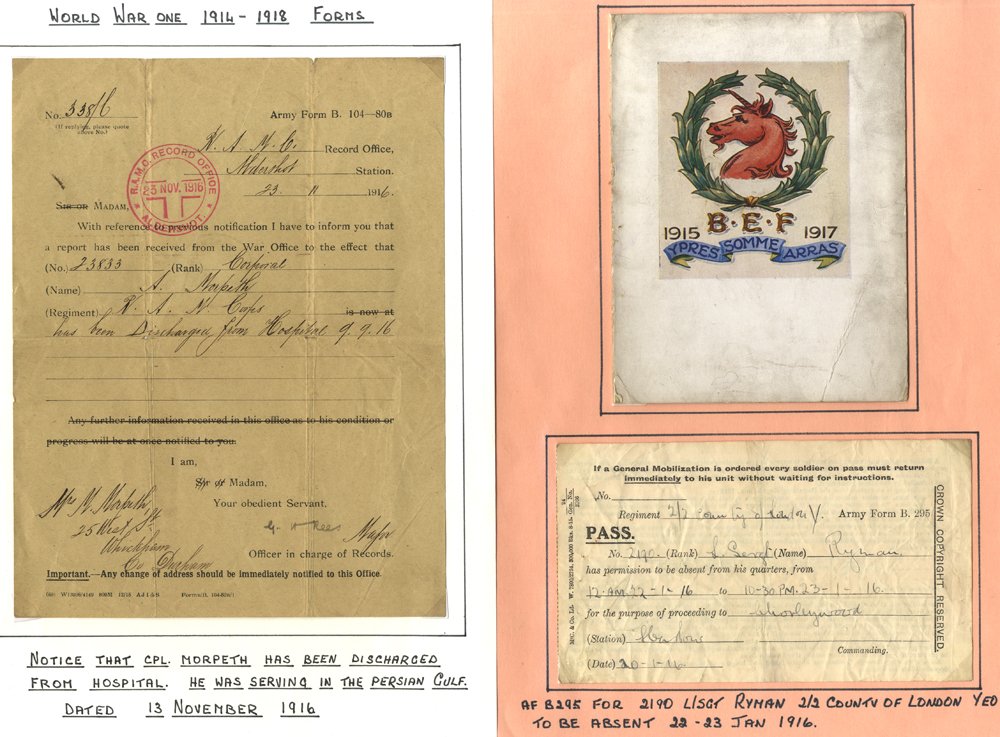 WORLD WAR ONE 1914-1918 FORMS
No. 338/6
(If replying, please quote
above No.)
Army Form B. 104—80B
R. A. M. C. Record Office,
Aldershot Station.
23. 11 1916.
R.A.M.C. RECORD OFFICE
23 NOV. 1916
ALDERSHOT.
SIR OR MADAM,
With reference to previous notification I have to inform you that
a report has been received from the War Office to the effect that
(No.) 23833 (Rank) Corporal
(Name) A. Morpeth
(Regiment) R. A. M. Corps is now at
has been Discharged from Hospital 9.9.16
Any further information received in this office as to his condition or
progress will be at once notified to you.
I am,
Sir or Madam,
Your obedient Servant.
Major
Officer in charge of Records.
Mrs M. Morpeth
25 West St
Whickham
Co Durham
Important.—Any change of address should be immediately notified to this Office.
NOTICE THAT CPL. MORPETH HAS BEEN DISCHARGED
FROM HOSPITAL. HE WAS SERVING IN THE PERSIAN GULF.
DATED 13 NOVEMBER 1916
B·E·F
1915 1917
YPRES SOMME ARRAS
If a General Mobilization is ordered every soldier on pass must return
immediately to his unit without waiting for instructions.
No.
Regiment 2/2 County of London Y. Army Form B. 295
PASS.
No. 2190. (Rank) L. Sergt (Name) Ryman
has permission to be absent from his quarters, from
12.AM.22-1-16 to 10-30 P.M. 23-1-16.
for the purpose of proceeding to Chorleywood
(Station)
Commanding.
(Date) 20-1-16.
CROWN COPYRIGHT RESERVED.
AF B295 FOR 2190 L/SGT RYMAN 2/2 COUNTY OF LONDON YEO
TO BE ABSENT 22-23 JAN 1916.